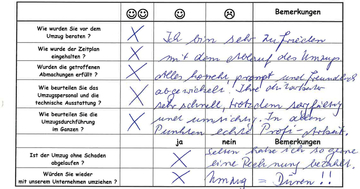 Bemerkungen
Wie wurden Sie vor dem
Umzug beraten ?
Wie wurde der Zeitplan
eingehalten ?
Wurden die getroffenen
Abmachungen erfüllt ?
Wie beurteilen Sie das
Umzugspersonal und die
technische Ausstattung ?
Wie beurteilen Sie die
Umzugsdurchführung
im Ganzen ?
Ich bin sehr zufrieden
mit dem Ablauf des Umzugs.
Alles korrekt, prompt und freundlich
abgewickelt. Ihre
sehr schnell, trotzdem sorgfältig
und umsichtig. In allen
Punkten echte Profi-Arbeit.
ja nein Bemerkungen
Ist der Umzug ohne Schaden
abgelaufen ?
Würden Sie wieder
mit unserem Unternehmen umziehen ?
Selten habe ich so gerne
eine Rechnung bezahlt.
Umzug = Düren !!